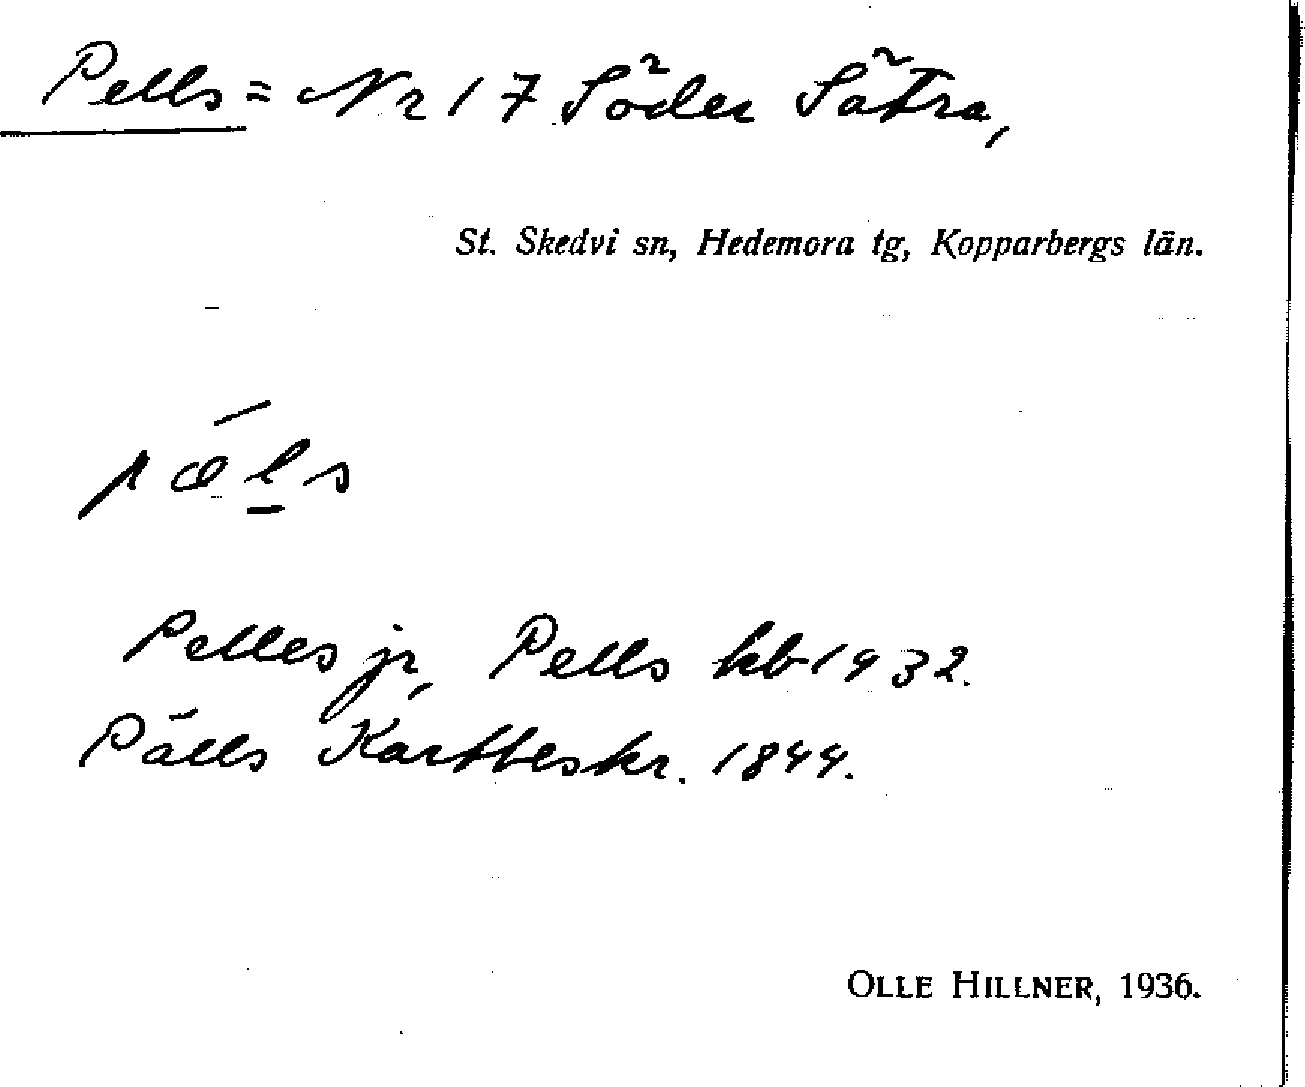 Pells = Nr 17 Söder Sätra,
St. Skedvi sn, Hedemora tg, Kopparbergs län.
pǽl̠s
Pelles jr, Pells kb 1932.
Pälls Kartbeskr. 1844.
OLLE HILLNER, 1936.